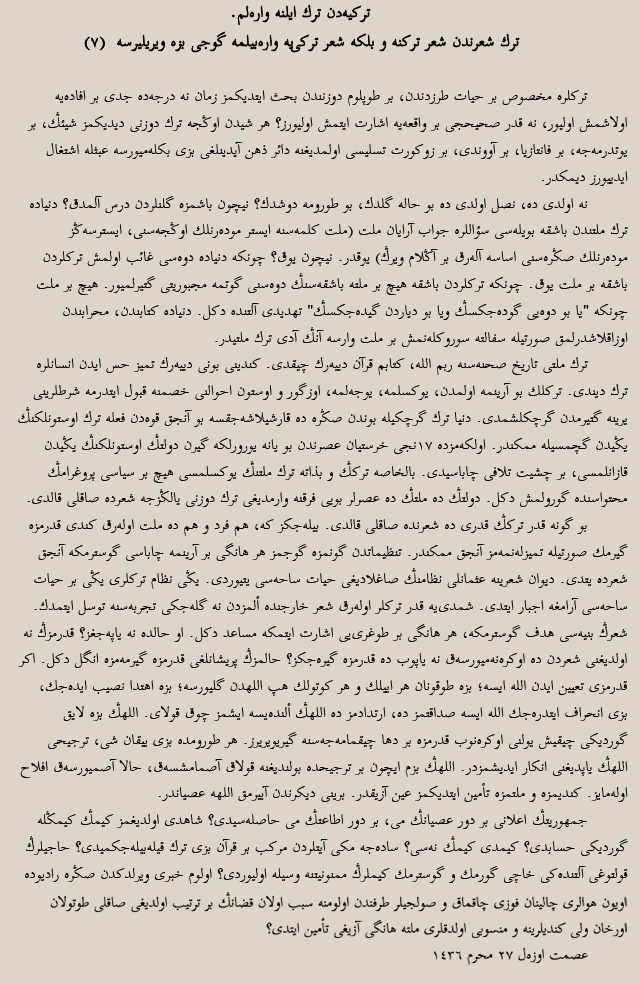 تركیه‌دن ترك ایلنه واره‌لم.
ترك شعرندن شعر تركنه و بلكه شعر تركی‌یه واره‌بیلمه گوجی بزه ویریلیرسه (٧)
تركلره مخصوص بر حیات طرزدندن، بر طوپلوم دوزنندن بحث ایتدیكمز زمان نه درجه‌ده جدی بر افاده‌یه
اولاشمش اولیور، نه قدر صحیحجی بر واقعه‌یه اشارت ایتمش اولیورز؟ هر شیدن اوڭجه ترك دوزنی دیدیكمز شیئڭ، بر
یوتدرمه‌جه، بر فانتازیا، بر آووندی، بر زوكورت تسلیسی اولمدیغنه دائر ذهن آیدینلغی بزی بكله‌میورسه عبثله اشتغال
ایدییورز دیمكدر.
نه اولدی ده، نصل اولدی ده بو حاله گلدك، بو طورومه دوشدك؟ نیچون باشمزه گلنلردن درس آلمدق؟ دنیاده
ترك ملتندن باشقه بویله‌سی سؤاللره جواب آرایان ملت (ملت كلمه‌سنه ایستر موده‌رنلك اوڭجه‌سنی، ایسترسه‌ڭز
موده‌رنلك صڭره‌سنی اساسه آله‌رق بر آڭلام ویرڭ) یوقدر. نیچون یوق؟ چونكه دنیاده دوه‌سی غائب اولمش تركلردن
باشقه بر ملت یوق. چونكه تركلردن باشقه هیچ بر ملته باشقه‌سنڭ دوه‌سنی گوتمه مجبوریتی گتیرلمیور. هیچ بر ملت
چونكه "یا بو دوه‌یی گوده‌جكسڭ ویا بو دیاردن گیده‌جكسڭ" تهدیدی آلتنده دكل. دنیاده كتابندن، محرابندن
اوزاقلاشدرلمق صورتیله سفالته سوروكله‌نمش بر ملت وارسه آنڭ آدی ترك ملتیدر.
ترك ملتی تاریخ صحنه‌سنه ربم الله، كتابم قرآن دییه‌رك چیقدی. كندینی بونی دییه‌رك تمیز حس ایدن انسانلره
ترك دیندی. تركلك بو آرینمه اولمدن، یوكسلمه، یوجه‌لمه، اوزگور و اوستون احوالنی خصمنه قبول ایتدرمه شرطلرینی
یرینه گتیرمدن گرچكلشمدی. دنیا ترك گرچكیله بوندن صڭره ده قارشیلاشه‌جقسه بو آنجق قوه‌دن فعله ترك اوستونلكنڭ
یڭیدن گچمسیله ممكندر. اولكه‌مزده ١٧نجی خرستیان عصرندن بو یانه یورورلكه گیرن دولتڭ اوستونلكنڭ یڭیدن
قازانلمسی، بر چشیت تلافی چاباسیدی. بالخاصه تركڭ و بذاته ترك ملتنڭ یوكسلمسی هیچ بر سیاسی پروغرامڭ
محتواسنده گورولمش دكل. دولتڭ ده ملتڭ ده عصرلر بویی فرقنه وارمدیغی ترك دوزنی یالڭزجه شعرده صاقلی قالدی.
بو گونه قدر تركڭ قدری ده شعرنده صاقلی قالدی. بیله‌جكز كه، هم فرد و هم ده ملت اوله‌رق كندی قدرمزه
گیرمك صورتیله تمیزله‌نمه‌مز آنجق ممكندر. تنظیماتدن گونمزه گوجمز هر هانگی بر آرینمه چاباسی گوسترمكه آنجق
شعرده یتدی. دیوان شعرینه عثمانلی نظامنڭ صاغلادیغی حیات ساحه‌سی یتیوردی. یڭی نظام تركلری یڭی بر حیات
ساحه‌سی آرامغه اجبار ایتدی. شمدی‌یه قدر تركلر اوله‌رق شعر خارجنده ألمزدن نه گله‌جكی تجربه‌سنه توسل ایتمدك.
شعرڭ بنیه‌سی هدف گوسترمكه، هر هانگی بر طوغری‌یی اشارت ایتمكه مساعد دكل. او حالده نه یاپه‌جغز؟ قدرمزڭ نه
اولدیغنی شعردن ده اوكره‌نه‌میورسه‌ق نه یاپوب ده قدرمزه گیره‌جكز؟ حالمزڭ پریشانلغی قدرمزه گیرمه‌مزه انگل دكل. اكر
قدرمزی تعیین ایدن الله ایسه؛ بزه طوقونان هر اییلك و هر كوتولك هپ اللهدن گلیورسه؛ بزه اهتدا نصیب ایده‌جك،
بزی انحراف ایتدره‌جك الله ایسه صداقتمز ده، ارتدادمز ده اللهڭ ألنده‌یسه ایشمز چوق قولای. اللهڭ بزه لایق
گوردیكی چیقیش یولنی اوكره‌نوب قدرمزه بر دها چیقمامه‌جه‌سنه گیریویریرز. هر طورومده بزی ییقان شی، ترجیحی
اللهڭ یاپدیغنی انكار ایدیشمزدر. اللهڭ بزم ایچون بر ترجیحده بولندیغنه قولاق آصمامشسه‌ق، حالا آصمیورسه‌ق افلاح
اوله‌مایز. كندیمزه و ملتمزه تأمین ایتدیكمز عین آزیقدر. برینی دیكرندن آییرمق اللهه عصیاندر.
جمهوریتڭ اعلانی بر دور عصیانڭ می، بر دور اطاعتڭ می حاصله‌سیدی؟ شاهدی اولدیغمز كیمڭ كیمڭله
گوردیكی حسابدی؟ كیمدی كیمڭ نه‌سی؟ ساده‌جه مكی آیتلردن مركب بر قرآن بزی ترك قیله‌بیله‌جكمیدی؟ حاجیلرڭ
قولتوغی آلتنده‌كی خاچی گورمك و گوسترمك كیملرڭ ممنونیتنه وسیله اولیوردی؟ اولوم خبری ویرلدكدن صڭره رادیوده
اویون هوالری چالینان فوزی چاقماق و صولجیلر طرفندن اولومنه سبب اولان قضانڭ بر ترتیب اولدیغی صاقلی طوتولان
اورخان ولی كندیلرینه و منسوبی اولدقلری ملته هانگی آزیغی تأمین ایتدی؟
عصمت اوزه‌ل ٢٧ محرم ١٤٣٦